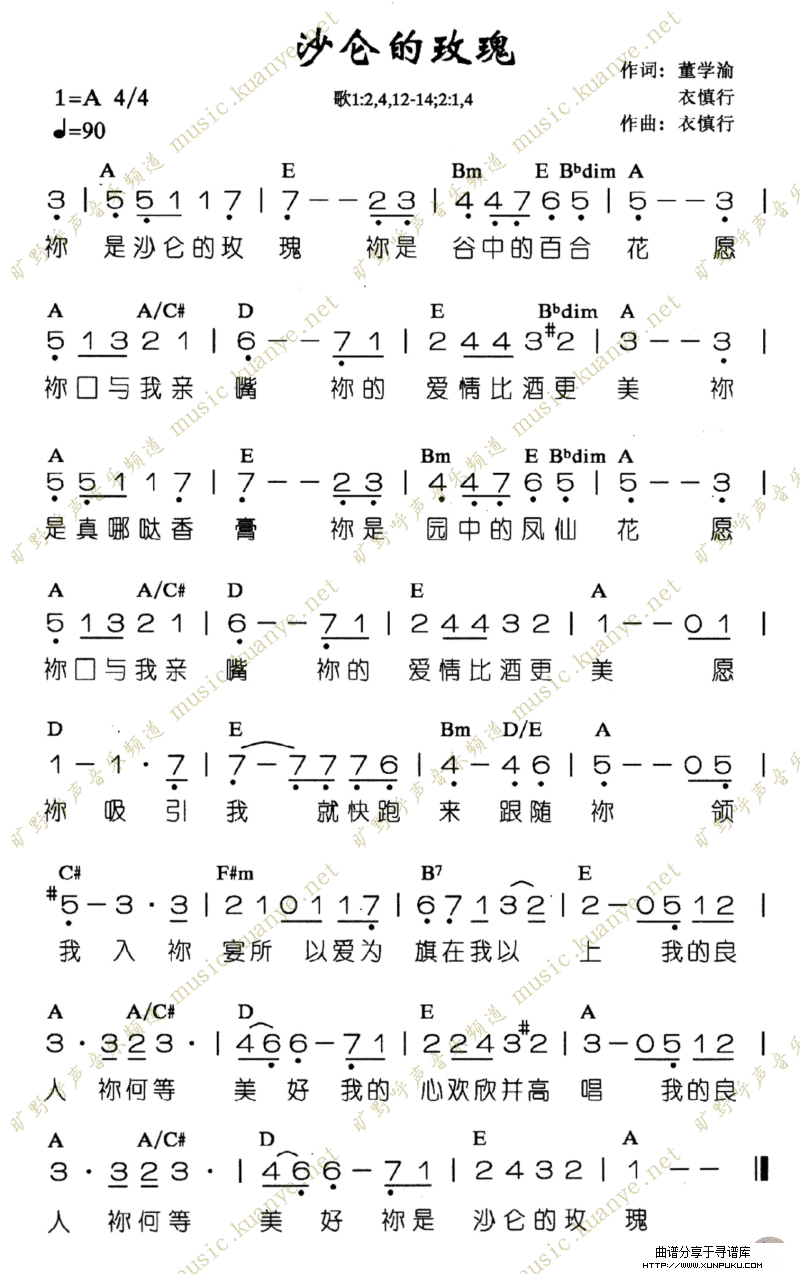 沙仑的玫瑰
1=A 4/4
♩=90
歌1:2,4,12-14;2:1,4
作词：董学渝
衣慎行
作曲：衣慎行
A E Bm E Bᵇdim A
3 | 5 5 1 1 7 | 7 - - 2 3 | 4 4 7 6 5 | 5 - - 3 |
祢 是沙仑的玫 瑰 祢是 谷中的百合 花 愿
A A/C# D E Bᵇdim A
5 1 3 2 1 | 6 - - 7 1 | 2 4 4 3 #2 | 3 - - 3 |
祢口与我亲 嘴 祢的 爱情比酒更 美 祢
A E Bm E Bᵇdim A
5 5 1 1 7 | 7 - - 2 3 | 4 4 7 6 5 | 5 - - 3 |
是真哪哒香 膏 祢是 园中的凤仙 花 愿
A A/C# D E A
5 1 3 2 1 | 6 - - 7 1 | 2 4 4 3 2 | 1 - - 0 1 |
祢口与我亲 嘴 祢的 爱情比酒更 美 愿
D E Bm D/E A
1 - 1 · 7 | 7 - 7 7 7 6 | 4 - 4 6 | 5 - - 0 5 |
祢 吸 引 我 就快跑 来 跟随 祢 领
C# F#m B7 E
#5 - 3 · 3 | 2 1 0 1 1 7 | 6 7 1 3 2 | 2 - 0 5 1 2 |
我 入 祢 宴所 以爱为 旗在我以 上 我的良
A A/C# D E A
3 · 3 2 3 · | 4 6 6 - 7 1 | 2 2 4 3 #2 | 3 - 0 5 1 2 |
人 祢何等 美 好 我的 心欢欣并高 唱 我的良
A A/C# D E A
3 · 3 2 3 · | 4 6 6 - 7 1 | 2 4 3 2 | 1 - - ‖
人 祢何等 美 好 祢是 沙仑的玫 瑰
旷野呼声音乐频道 music.kuanye.net
曲谱分享于寻谱库
HTTP://WWW.XUNPUKU.COM